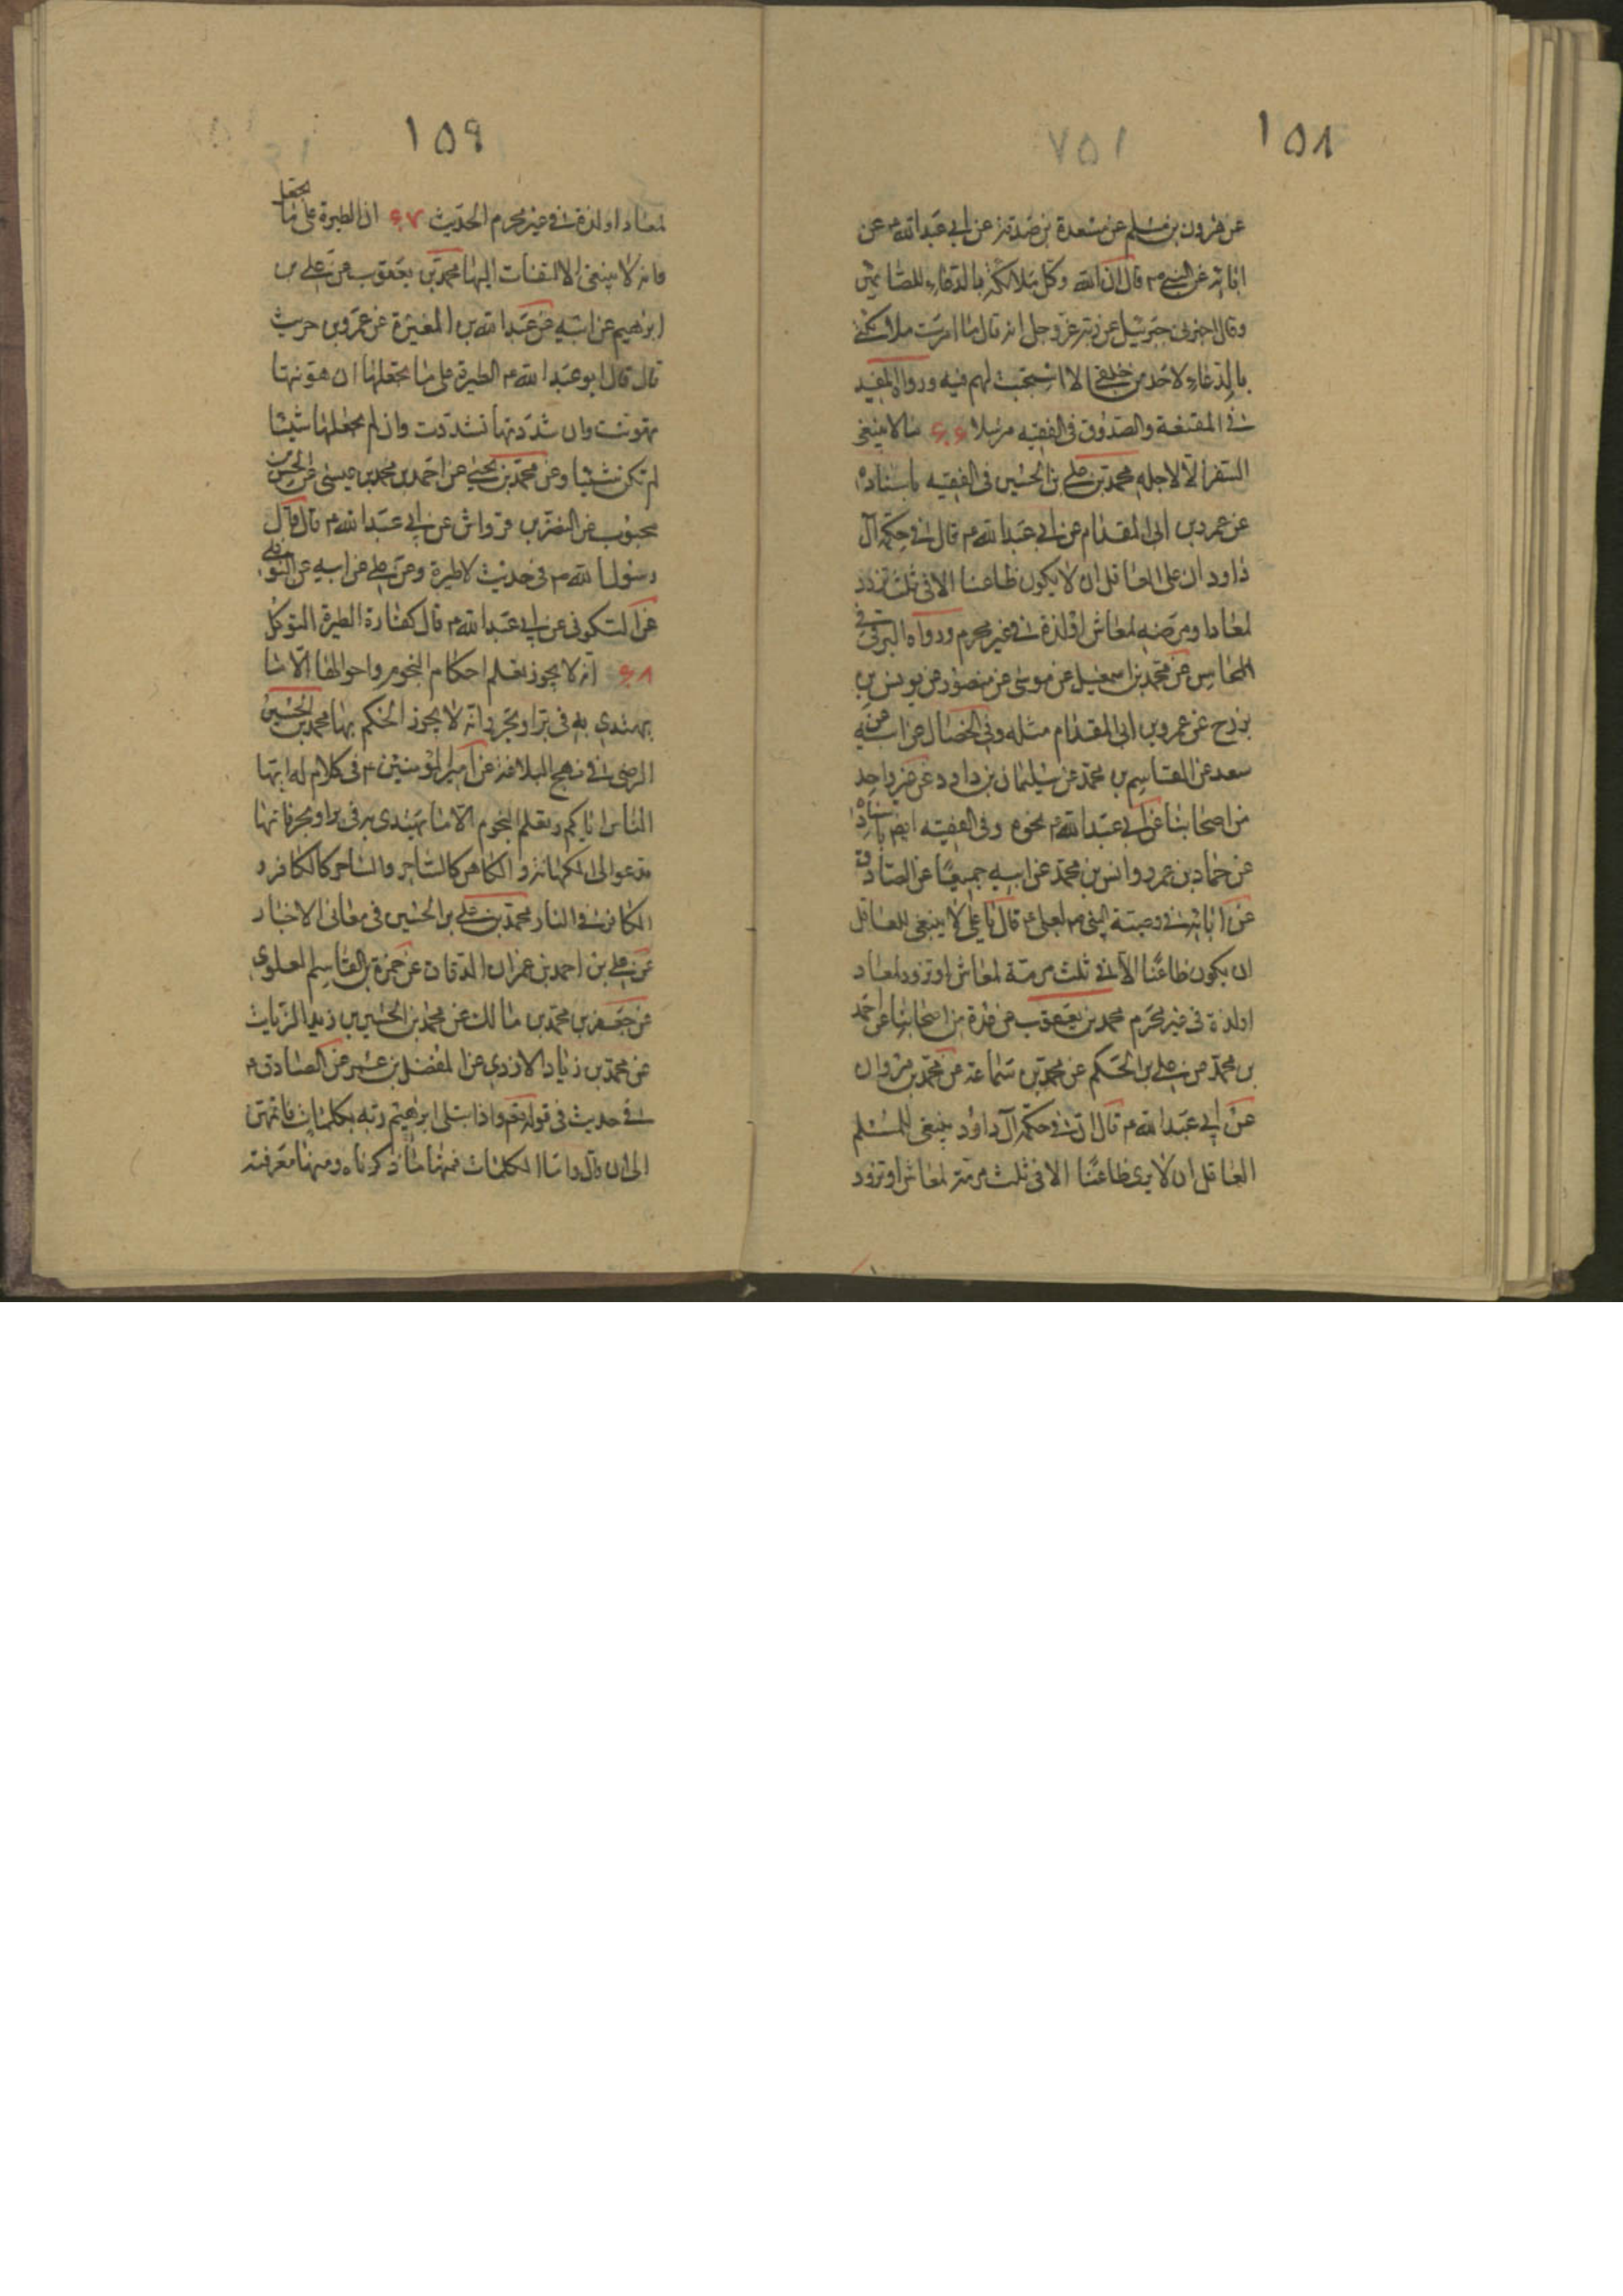 ١٥٨
٧٥١
عن هرون بن مسلم عن مسعدة بن صدقة عن ابي عبد الله ع عن
ابائه عن النبي ص قال ان الله وكل ملائكة بالدعاء للصائمين
وقال اخبرني جبرئيل عن ربه عز وجل انه قال ما امرت ملائكتي
بالدعاء لاحد من خلقي الا استجبت لهم فيه ورواه المفيد
في المقنعة والصدوق في الفقيه مرسلا ٦٦ ما لا ينبغي
السفر الا لاجله محمد بن علي بن الحسين في الفقيه باسناده
عن عمرو بن ابي المقدام عن ابي عبد الله ع قال في حكمة آل
داود ان على العاقل ان لا يكون ظاعنا الا في ثلث تزود
لمعاد او مرمة لمعاش او لذة في غير محرم ورواه البرقي في
المحاسن عن محمد بن اسمعيل عن موسى عن منصور عن يونس بن
بزرج عن عمرو بن ابي المقدام مثله وفي الخصال عن ابيه عن
سعد عن القاسم بن محمد عن سليمان بن داود عن غير واحد
من اصحابنا عن ابي عبد الله ع نحوه وفي الفقيه ايضا باسناده
عن حماد بن عمرو وانس بن محمد عن ابيه جميعا عن الصادق
عن ابائه في وصية النبي ص لعلي ع قال يا علي لا ينبغي للعاقل
ان يكون ظاعنا الا في ثلث مرمة لمعاش او تزود لمعاد
او لذة في غير محرم محمد بن يعقوب عن عدة من اصحابنا عن احمد
بن محمد عن علي بن الحكم عن محمد بن سماعة عن محمد بن مروان
عن ابي عبد الله ع قال ان في حكمة آل داود ينبغي للمسلم
العاقل ان لا يرى ظاعنا الا في ثلث مرمة لمعاش او تزود
١٥٩
لمعاد او لذة في غير محرم الحديث ٦٧ ان الطيرة على ما يجعل
فانه لا ينبغي الالتفات اليها محمد بن يعقوب عن علي بن
ابرهيم عن ابيه عن عبد الله بن المغيرة عن عمرو بن حريث
قال قال ابو عبد الله ع الطيرة على ما تجعلها ان هونتها
تهونت وان شددتها تشددت وان لم تجعلها شيئا
لم تكن شيئا وعن محمد بن يحيى عن احمد بن محمد بن عيسى عن الحسن بن
محبوب عن النضر بن قرواش عن ابي عبد الله ع قال قال
رسول الله ص في حديث لا طيرة وعن علي عن ابيه عن النوفلي
عن السكوني عن ابي عبد الله ع قال كفارة الطيرة التوكل
٦٨ انه لا يجوز تعلم احكام النجوم واحوالها الا ما
يهتدى به في بر او بحر وانه لا يجوز الحكم بها محمد بن الحسين
الرضي في نهج البلاغة عن امير المؤمنين ع في كلام له ايها
الناس اياكم وتعلم النجوم الا ما يهتدى به في بر او بحر فانها
تدعو الى الكهانة والكاهن كالساحر والساحر كالكافر و
الكافر في النار محمد بن علي بن الحسين في معاني الاخبار
عن علي بن احمد بن عمران الدقاق عن حمزة بن القاسم العلوي
عن جعفر بن محمد بن مالك عن محمد بن الحسين بن زيد الزيات
عن محمد بن زياد الازدي عن المفضل بن عمر عن الصادق ع
في حديث في قوله تعم واذ ابتلى ابرهيم ربه بكلمات فاتمهن
الى ان قال واما الكلمات فمنها ما ذكرناه ومنها معرفته